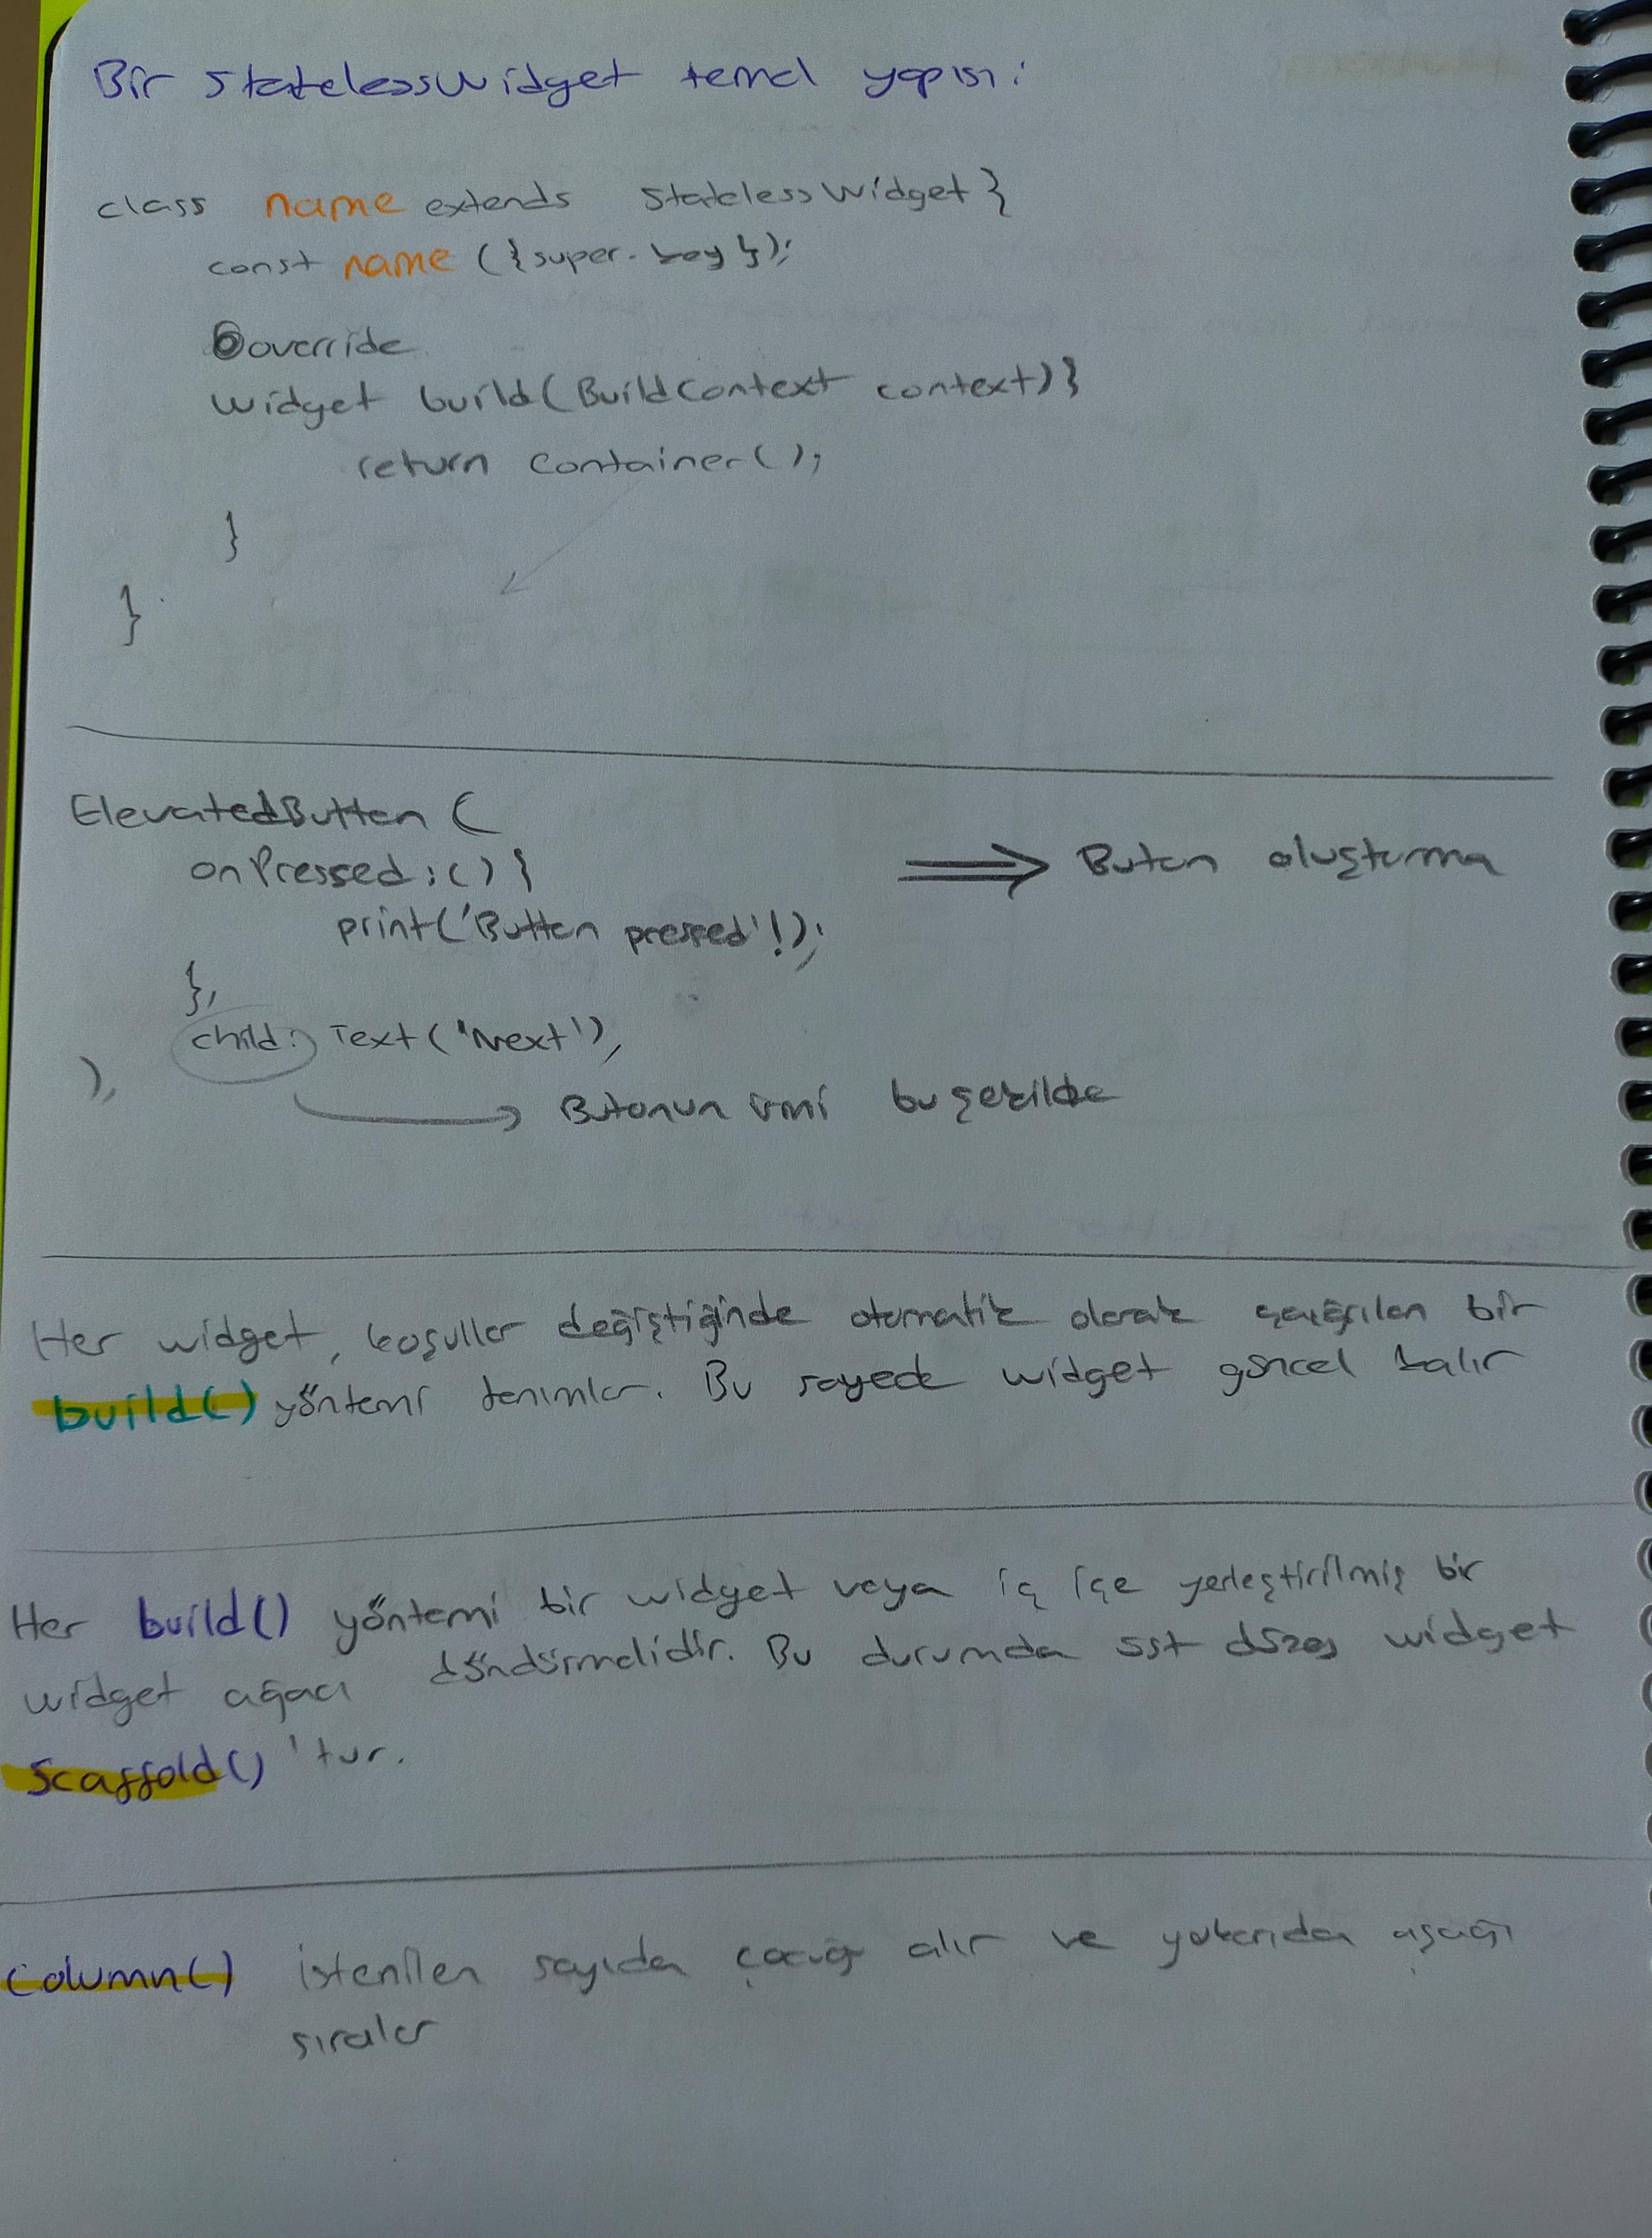 Bir StatelessWidget temel yapısı:
class name extends StatelessWidget }
const name ({super.key});
@override
Widget build(BuildContext context) }
return Container();
}
}
ElevatedButton (
onPressed:() }
print('Button pressed'!);
},
child: Text('Next'),
),
⟹ Buton oluşturma
→ Butonun ismi bu şekilde
Her widget, koşullar değiştiğinde otomatik olarak çağrılan bir
build() yöntemi tanımlar. Bu sayede widget güncel kalır
Her build() yöntemi bir widget veya iç içe yerleştirilmiş bir
widget ağacı döndürmelidir. Bu durumda üst düzey widget
Scaffold() 'tur.
Column() istenilen sayıda çocuğu alır ve yukarıdan aşağı
sıralar